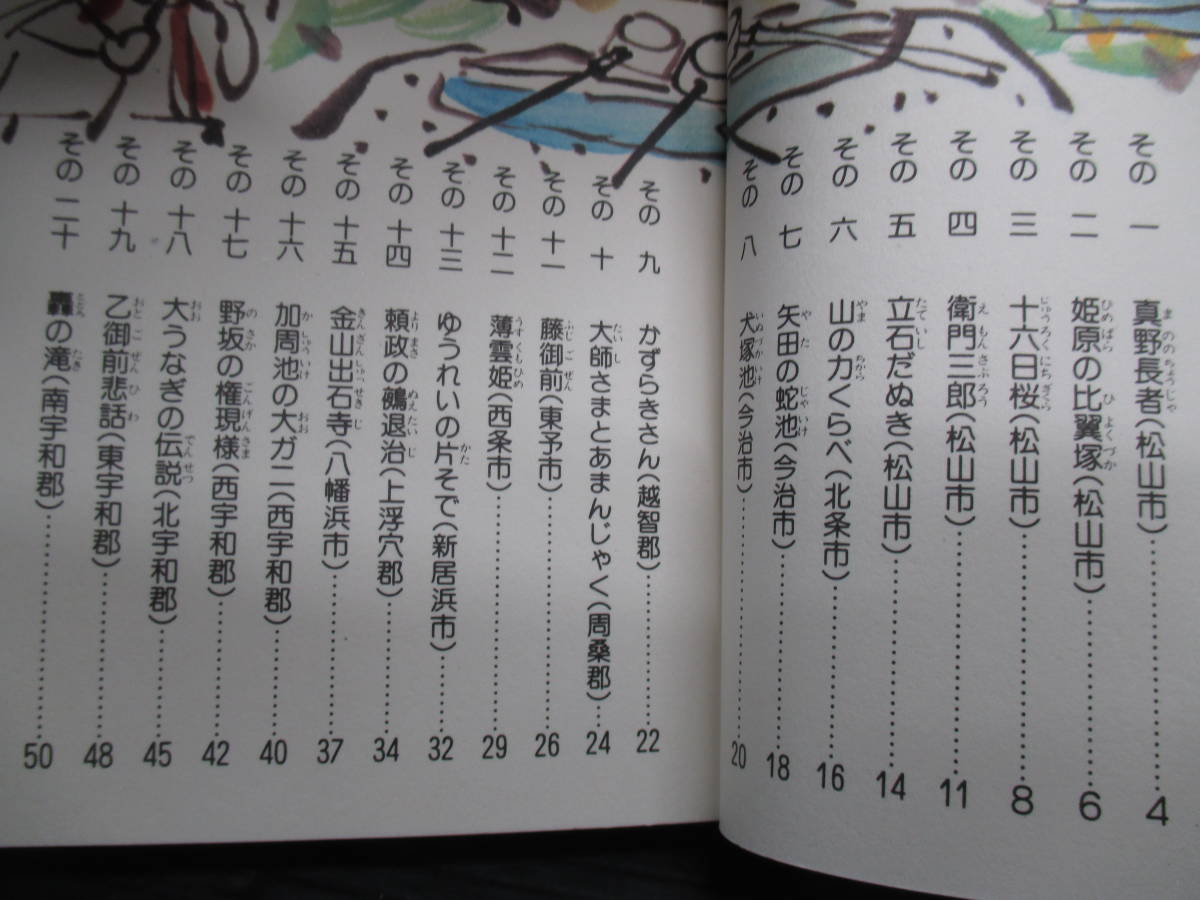 その一 真野長者(松山市)……4
その二 姫原の比翼塚(松山市)……6
その三 十六日桜(松山市)……8
その四 衛門三郎(松山市)……11
その五 立石だぬき(松山市)……14
その六 山の力くらべ(北条市)……16
その七 矢田の蛇池(今治市)……18
その八 犬塚池(今治市)……20
その九 かずらきさん(越智郡)……22
その十 大師さまとあまんじゃく(周桑郡)……24
その十一 藤御前(東予市)……26
その十二 薄雲姫(西条市)……29
その十三 ゆうれいの片そで(新居浜市)……32
その十四 頼政の鵺退治(上浮穴郡)……34
その十五 金山出石寺(八幡浜市)……37
その十六 加周池の大ガニ(西宇和郡)……40
その十七 野坂の権現様(西宇和郡)……42
その十八 大うなぎの伝説(北宇和郡)……45
その十九 乙御前悲話(東宇和郡)……48
その二十 轟の滝(南宇和郡)……50